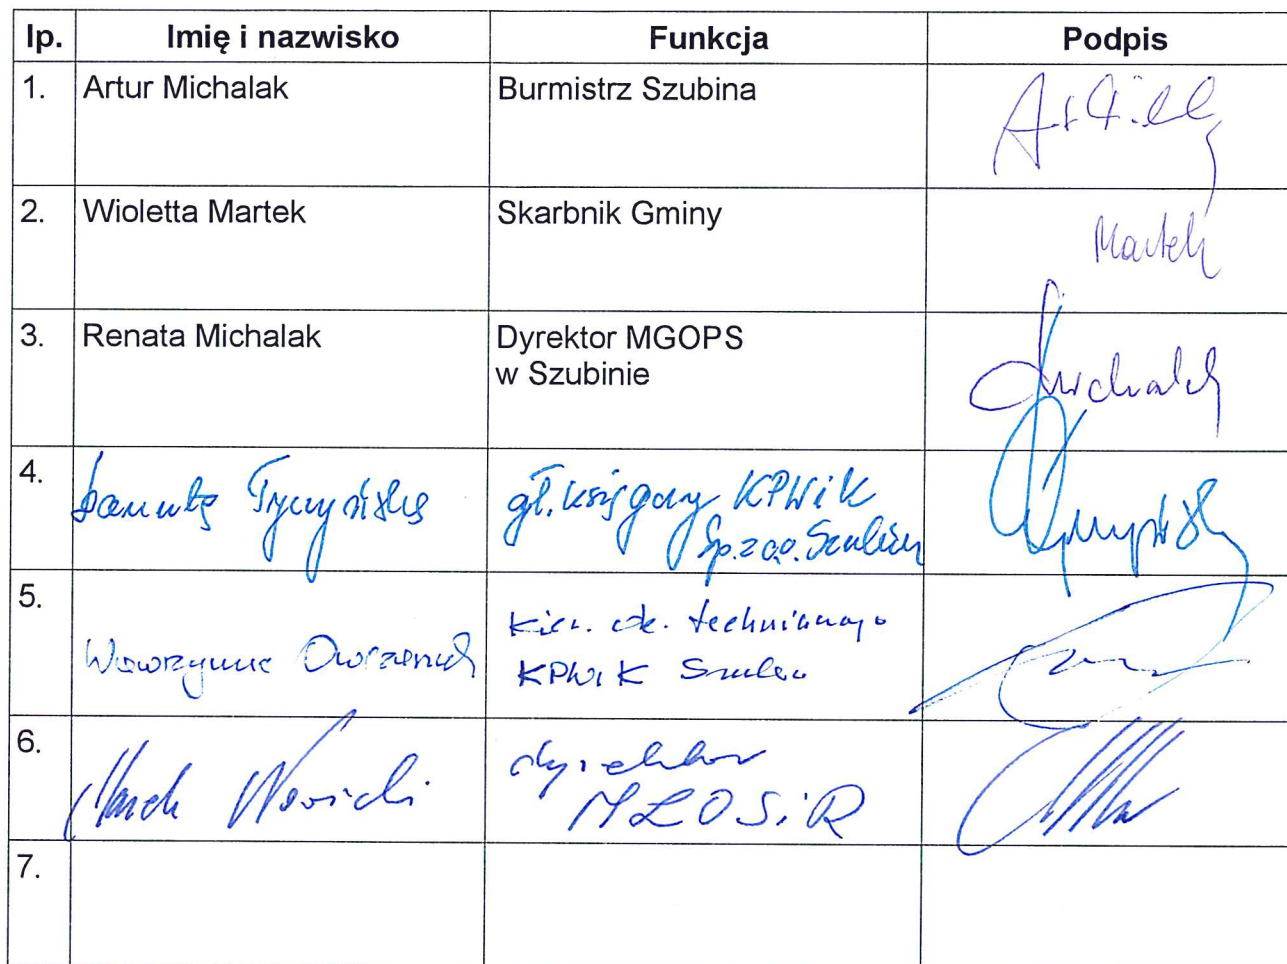 lp. Imię i nazwisko Funkcja Podpis
1. Artur Michalak Burmistrz Szubina
2. Wioletta Martek Skarbnik Gminy Martek
3. Renata Michalak Dyrektor MGOPS
w Szubinie
4. Danuta gł. księgowy KPWiK
Sp. z o.o. Szubin
5. Wawrzyniec technicznego
KPWiK Szubin
6. Marek Nowicki dyrektor
MLOSiR
7.